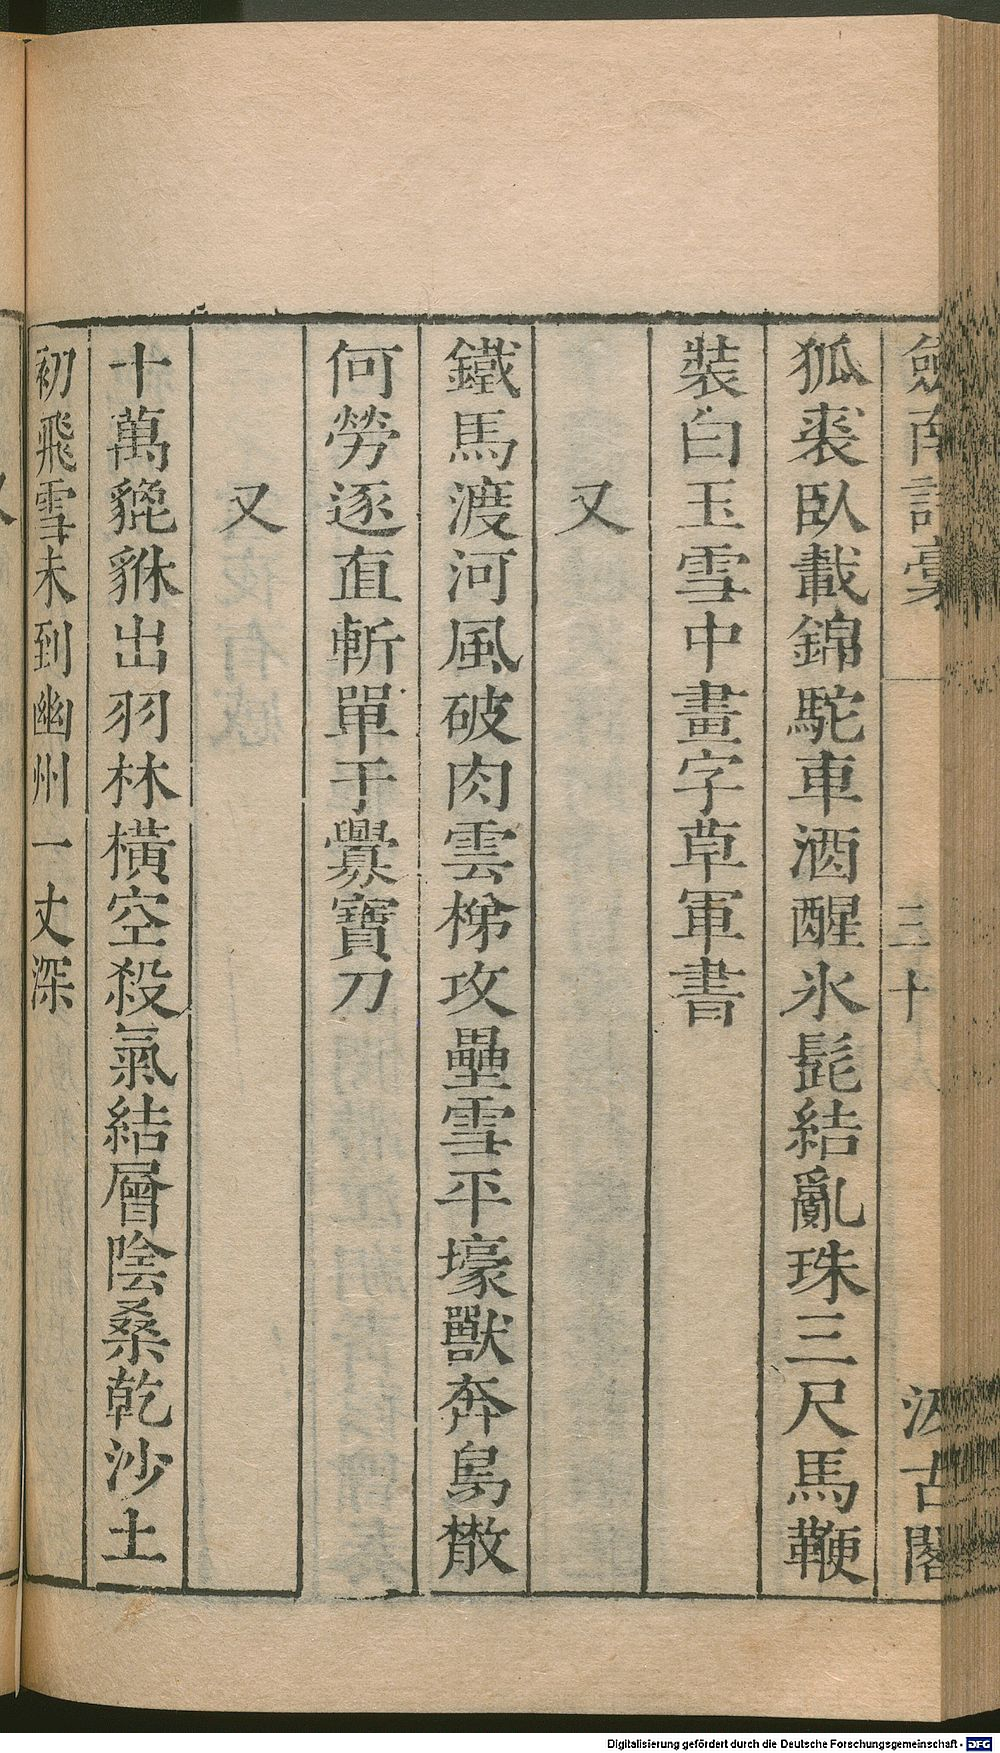 劍南詩稾 三十 汲古閣
狐裘臥載錦駝車酒醒氷髭結亂珠三尺馬鞭
裝白玉雪中畫字草軍書
又
鐵馬渡河風破肉雲梯攻壘雪平壕獸奔鳥散
何勞逐直斬單于釁寶刀
又
十萬貔貅出羽林橫空殺氣結層陰桑乾沙土
初飛雪未到幽州一丈深
又
Digitalisierung gefördert durch die Deutsche Forschungsgemeinschaft - DFG